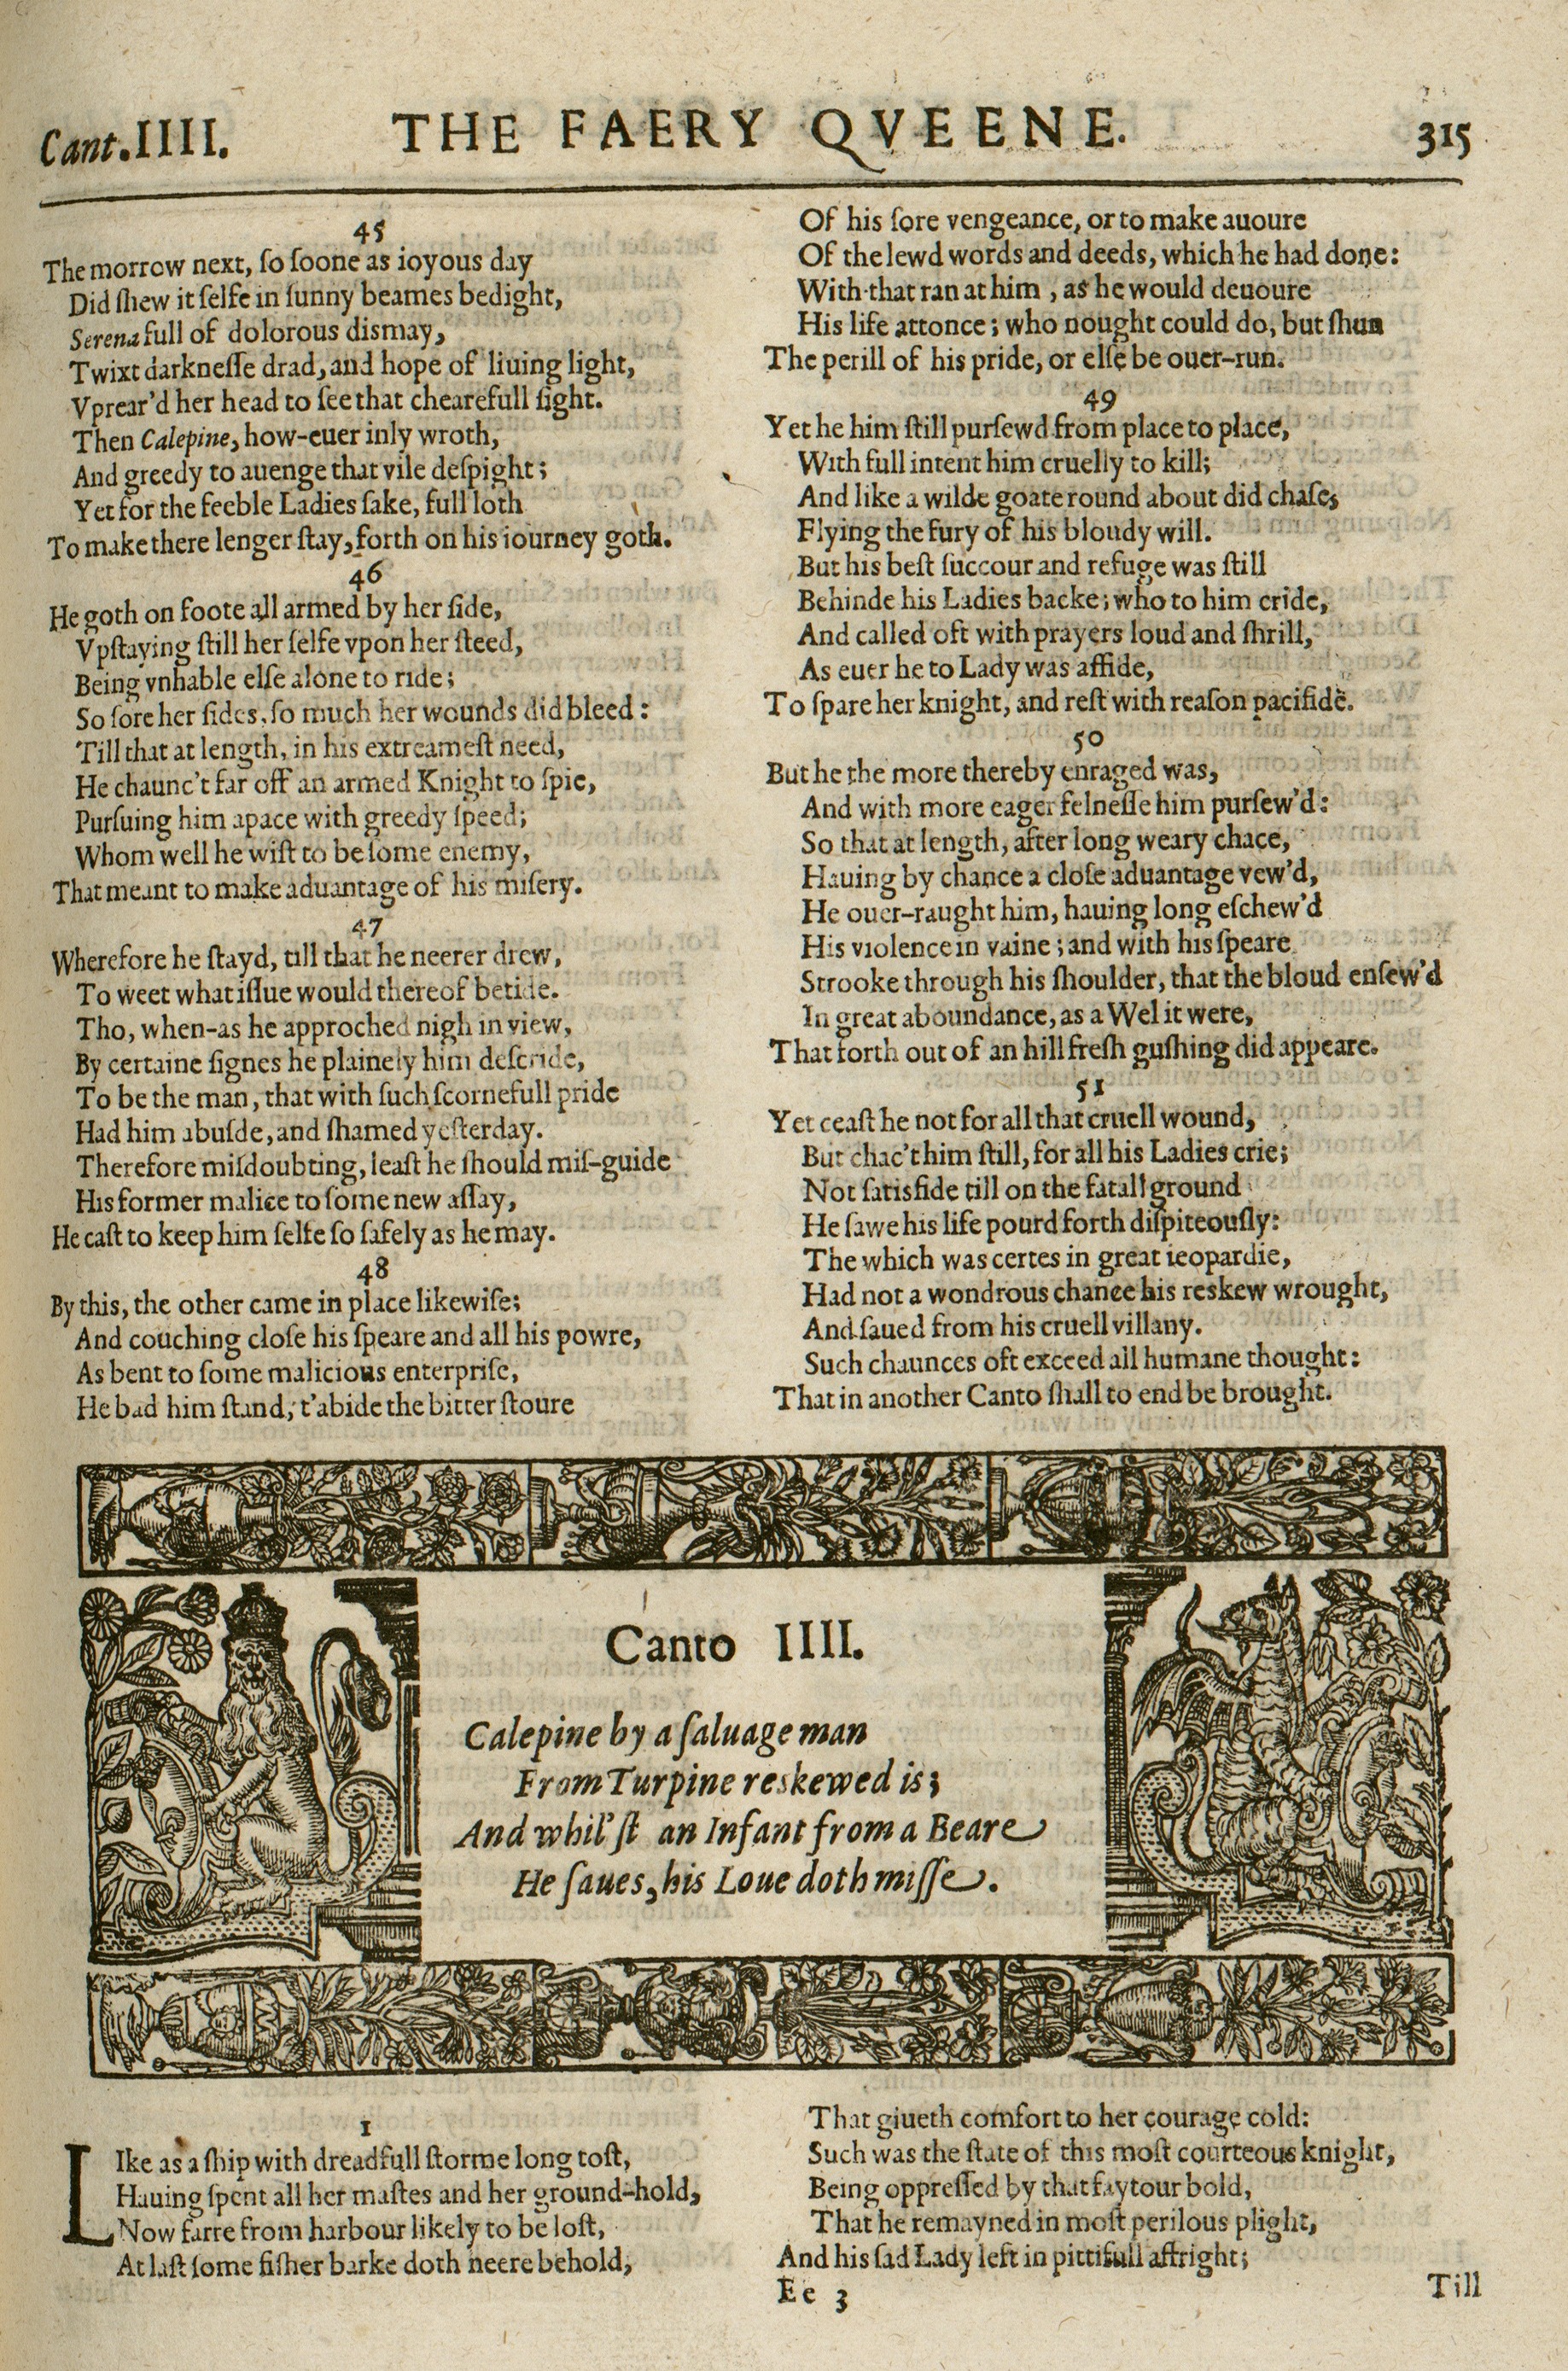 Cant.IIII. THE FAERY QVEENE. 315
45
The morrow next, ſo ſoone as ioyous day
Did ſhew it ſelfe in ſunny beames bedight,
Serena full of dolorous diſmay,
Twixt darkneſſe drad, and hope of liuing light,
Vprear'd her head to ſee that chearefull ſight.
Then Calepine, how-euer inly wroth,
And greedy to auenge that vile deſpight;
Yet for the feeble Ladies ſake, full loth
To make there lenger ſtay, forth on his iourney goth.
46
He goth on foote all armed by her ſide,
Vpſtaying ſtill her ſelfe vpon her ſteed,
Being vnhable elſe alone to ride;
So ſore her ſides, ſo much her wounds did bleed:
Till that at length, in his extreameſt need,
He chaunc't far off an armed Knight to ſpie,
Purſuing him apace with greedy ſpeed;
Whom well he wiſt to be ſome enemy,
That meant to make aduantage of his miſery.
47
Wherefore he ſtayd, till that he neerer drew,
To weet what iſſue would thereof betide.
Tho, when-as he approched nigh in view,
By certaine ſignes he plainely him deſcride,
To be the man, that with ſuch ſcornefull pride
Had him abuſde, and ſhamed yeſterday.
Therefore miſdoubting, leaſt he ſhould miſ-guide
His former malice to ſome new aſſay,
He caſt to keep him ſelfe ſo ſafely as he may.
48
By this, the other came in place likewiſe;
And couching cloſe his ſpeare and all his powre,
As bent to ſome malicious enterpriſe,
He bad him ſtand, t'abide the bitter ſtoure
Of his ſore vengeance, or to make auoure
Of the lewd words and deeds, which he had done:
With that ran at him, as he would deuoure
His life attonce; who nought could do, but ſhun
The perill of his pride, or elſe be ouer-run.
49
Yet he him ſtill purſewd from place to place,
With full intent him cruelly to kill;
And like a wilde goate round about did chaſe,
Flying the fury of his bloudy will.
But his beſt ſuccour and refuge was ſtill
Behinde his Ladies backe; who to him cride,
And called oft with prayers loud and ſhrill,
As euer he to Lady was affide,
To ſpare her knight, and reſt with reaſon pacifide.
50
But he the more thereby enraged was,
And with more eager felneſſe him purſew'd:
So that at length, after long weary chace,
Hauing by chance a cloſe aduantage vew'd,
He ouer-raught him, hauing long eſchew'd
His violence in vaine; and with his ſpeare
Strooke through his ſhoulder, that the bloud enſew'd
In great aboundance, as a Wel it were,
That forth out of an hill freſh guſhing did appeare.
51
Yet ceaſt he not for all that cruell wound,
But chac't him ſtill, for all his Ladies crie;
Not ſatisfide till on the fatall ground
He ſawe his life pourd forth diſpiteouſly:
The which was certes in great ieopardie,
Had not a wondrous chance his reskew wrought,
And ſaued from his cruell villany.
Such chaunces oft exceed all humane thought:
That in another Canto ſhall to end be brought.
Canto IIII.
Calepine by a ſaluage man
From Turpine reskewed is;
And whil'ſt an Infant from a Beare
He ſaues, his Loue doth miſſe.
1
LIke as a ſhip with dreadfull ſtorme long toſt,
Hauing ſpent all her maſtes and her ground-hold,
Now farre from harbour likely to be loſt,
At laſt ſome fiſher barke doth neere behold,
That giueth comfort to her courage cold:
Such was the ſtate of this moſt courteous knight,
Being oppreſſed by that faytour bold,
That he remayned in moſt perilous plight,
And his ſad Lady left in pittifull affright;
Ee 3
Till